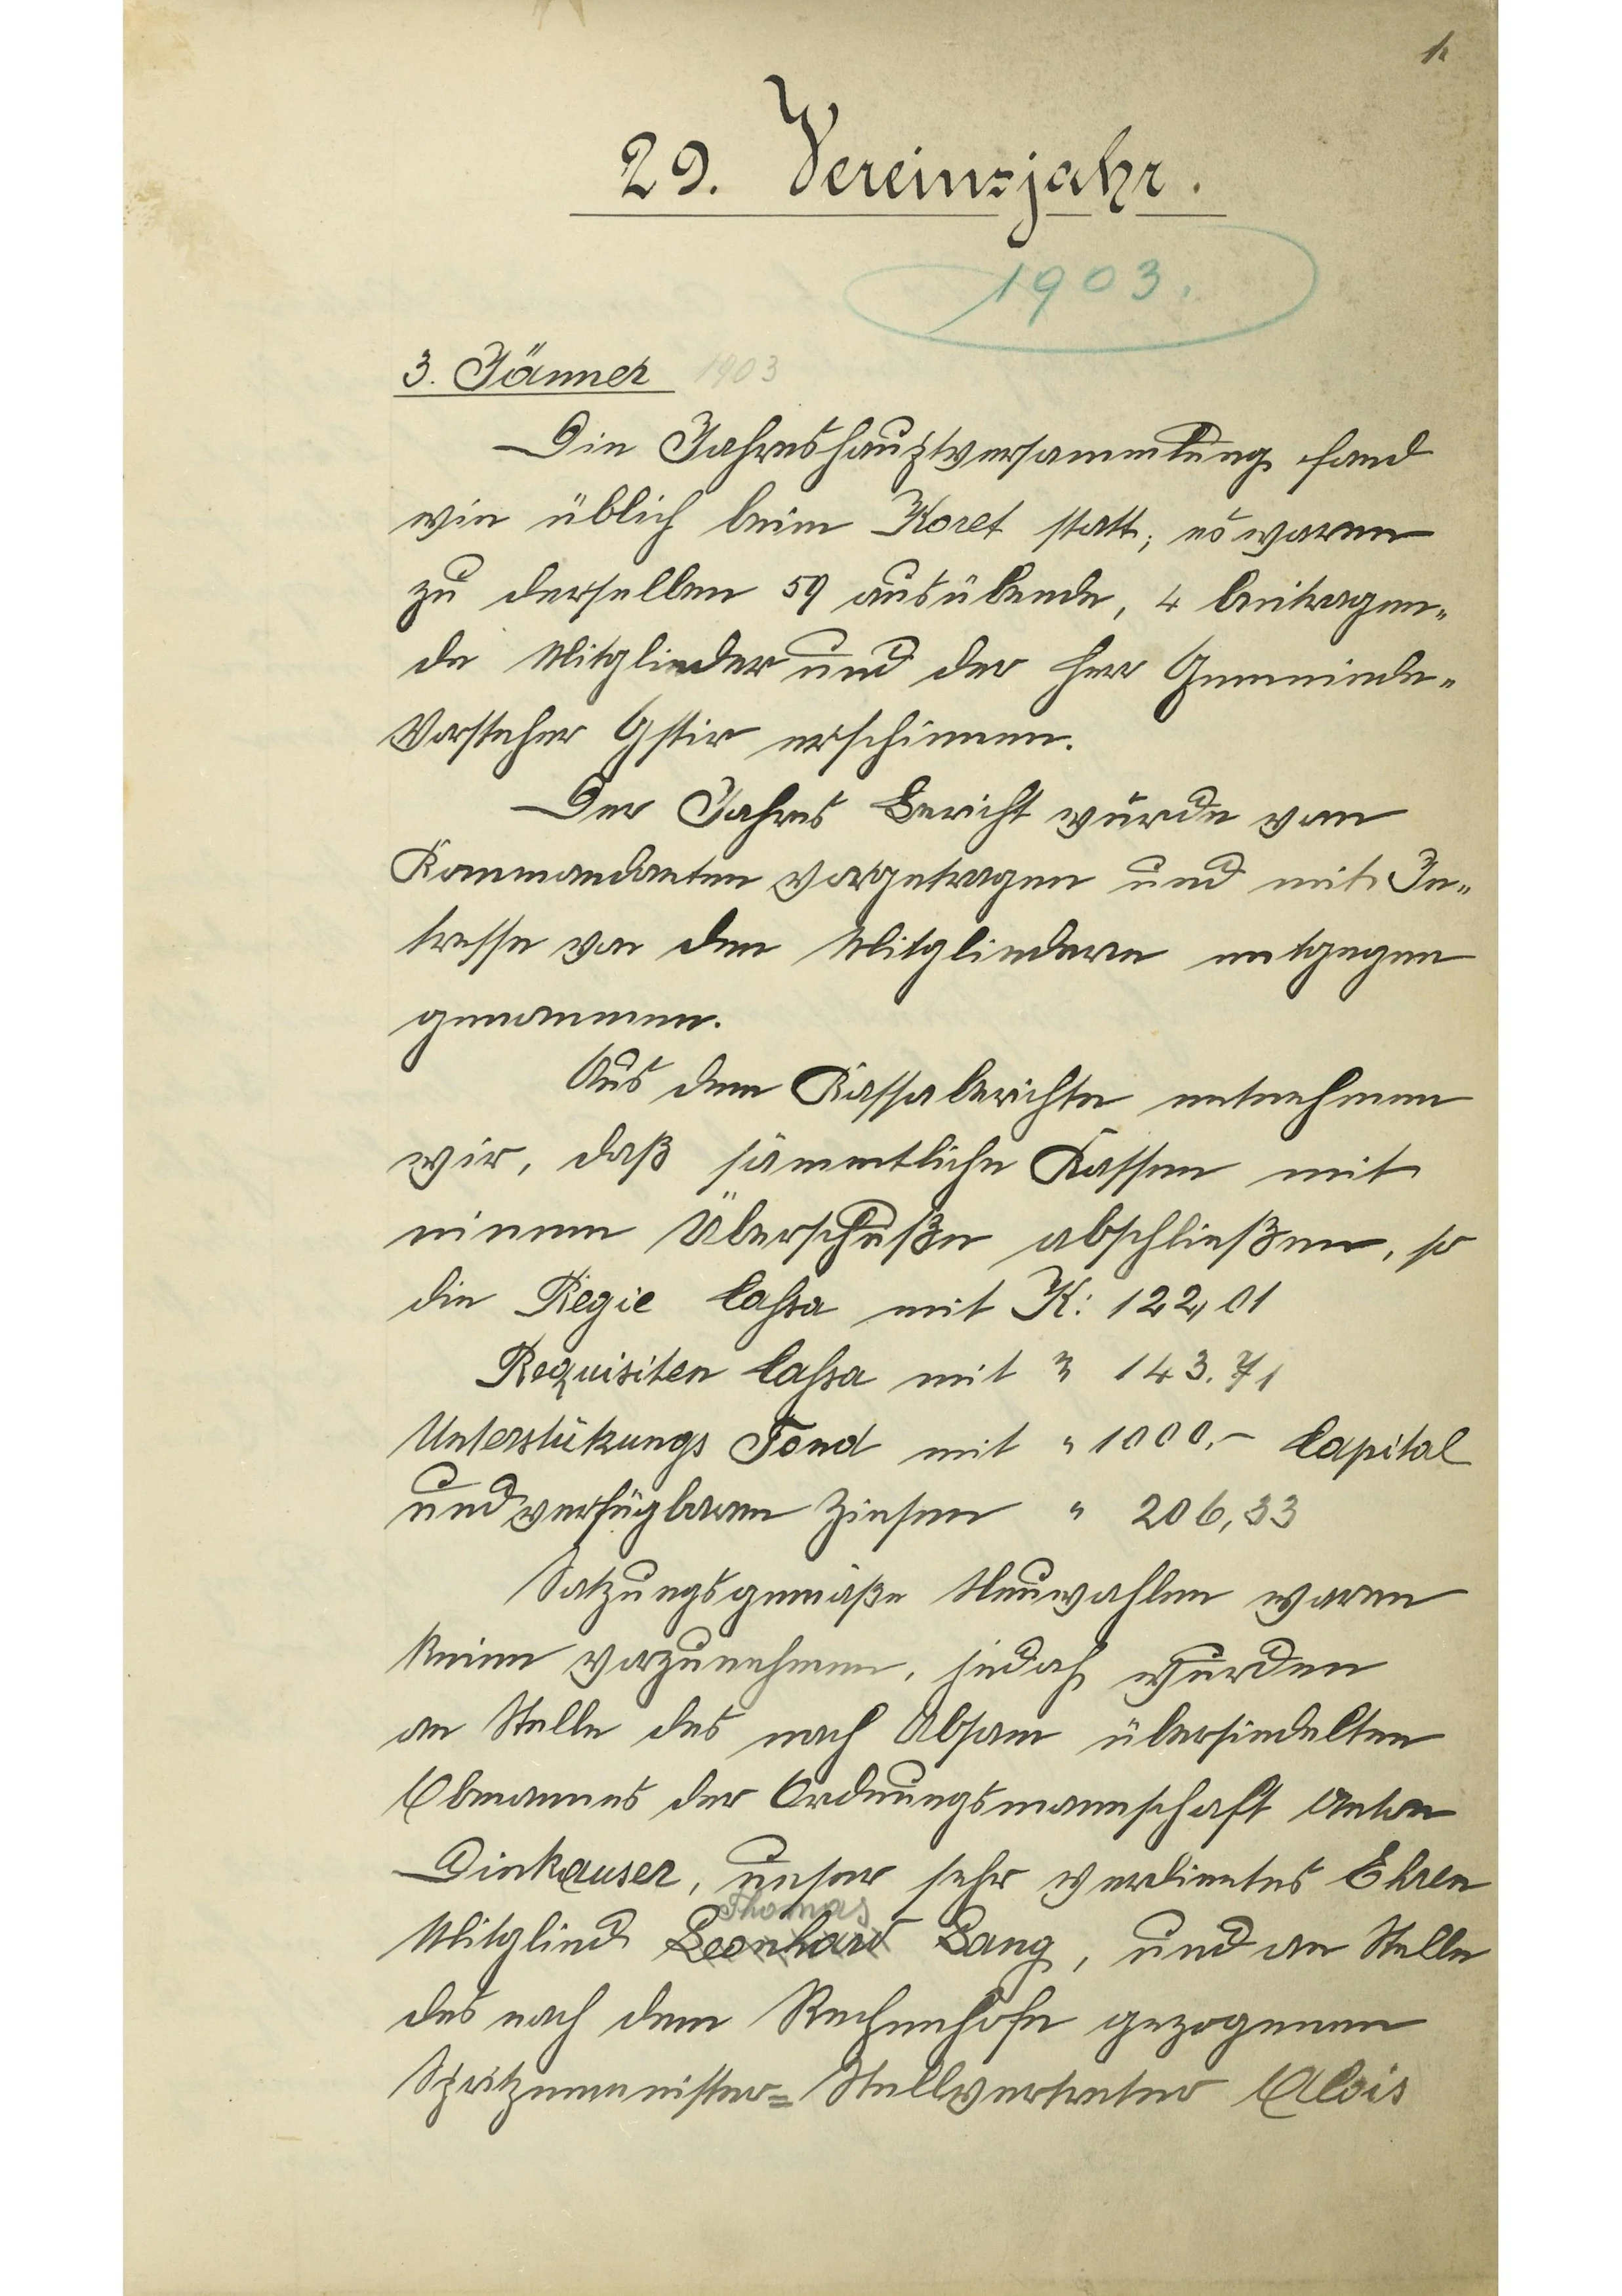 1.
29. Vereinsjahr.
1903.
3. Jänner 1903
Die Jahreshauptversammlung fand
wie üblich beim Koret statt; es waren
zu derselben 59 ausübende, 4 beitragen-
de Mitglieder und der Herr Gemeinde-
Vorsteher Gstir erschienen.
Der Jahres Bericht wurde vom
Kommandanten vorgetragen und mit In-
tresse von den Mitgliedern entgegen
genommen.
Aus dem Kassaberichte entnehmen
wir, daß sämmtliche Kassen mit
einem Überschuße abschließen, so
die Regie Cassa mit K: 122,01
Requisiten Cassa mit " 143.71
Unterstükungs Fond mit " 1000.- Capital
und verfügbaren Zinsen " 206,33
Satzungsgemäße Neuwahlen waren
keine vorzunehmen, jedoch wurden
an Stelle des nach Absam übersiedelten
Obmannes der Ordnungsmannschaft Anton
Dinkhauser, unser sehr verdientes Ehren
Thomas
Mitglied Leonhard Lang, und an Stelle
des nach dem Rechenhofe gezogenen
Spritzenmeister= Stellvertreter Alois